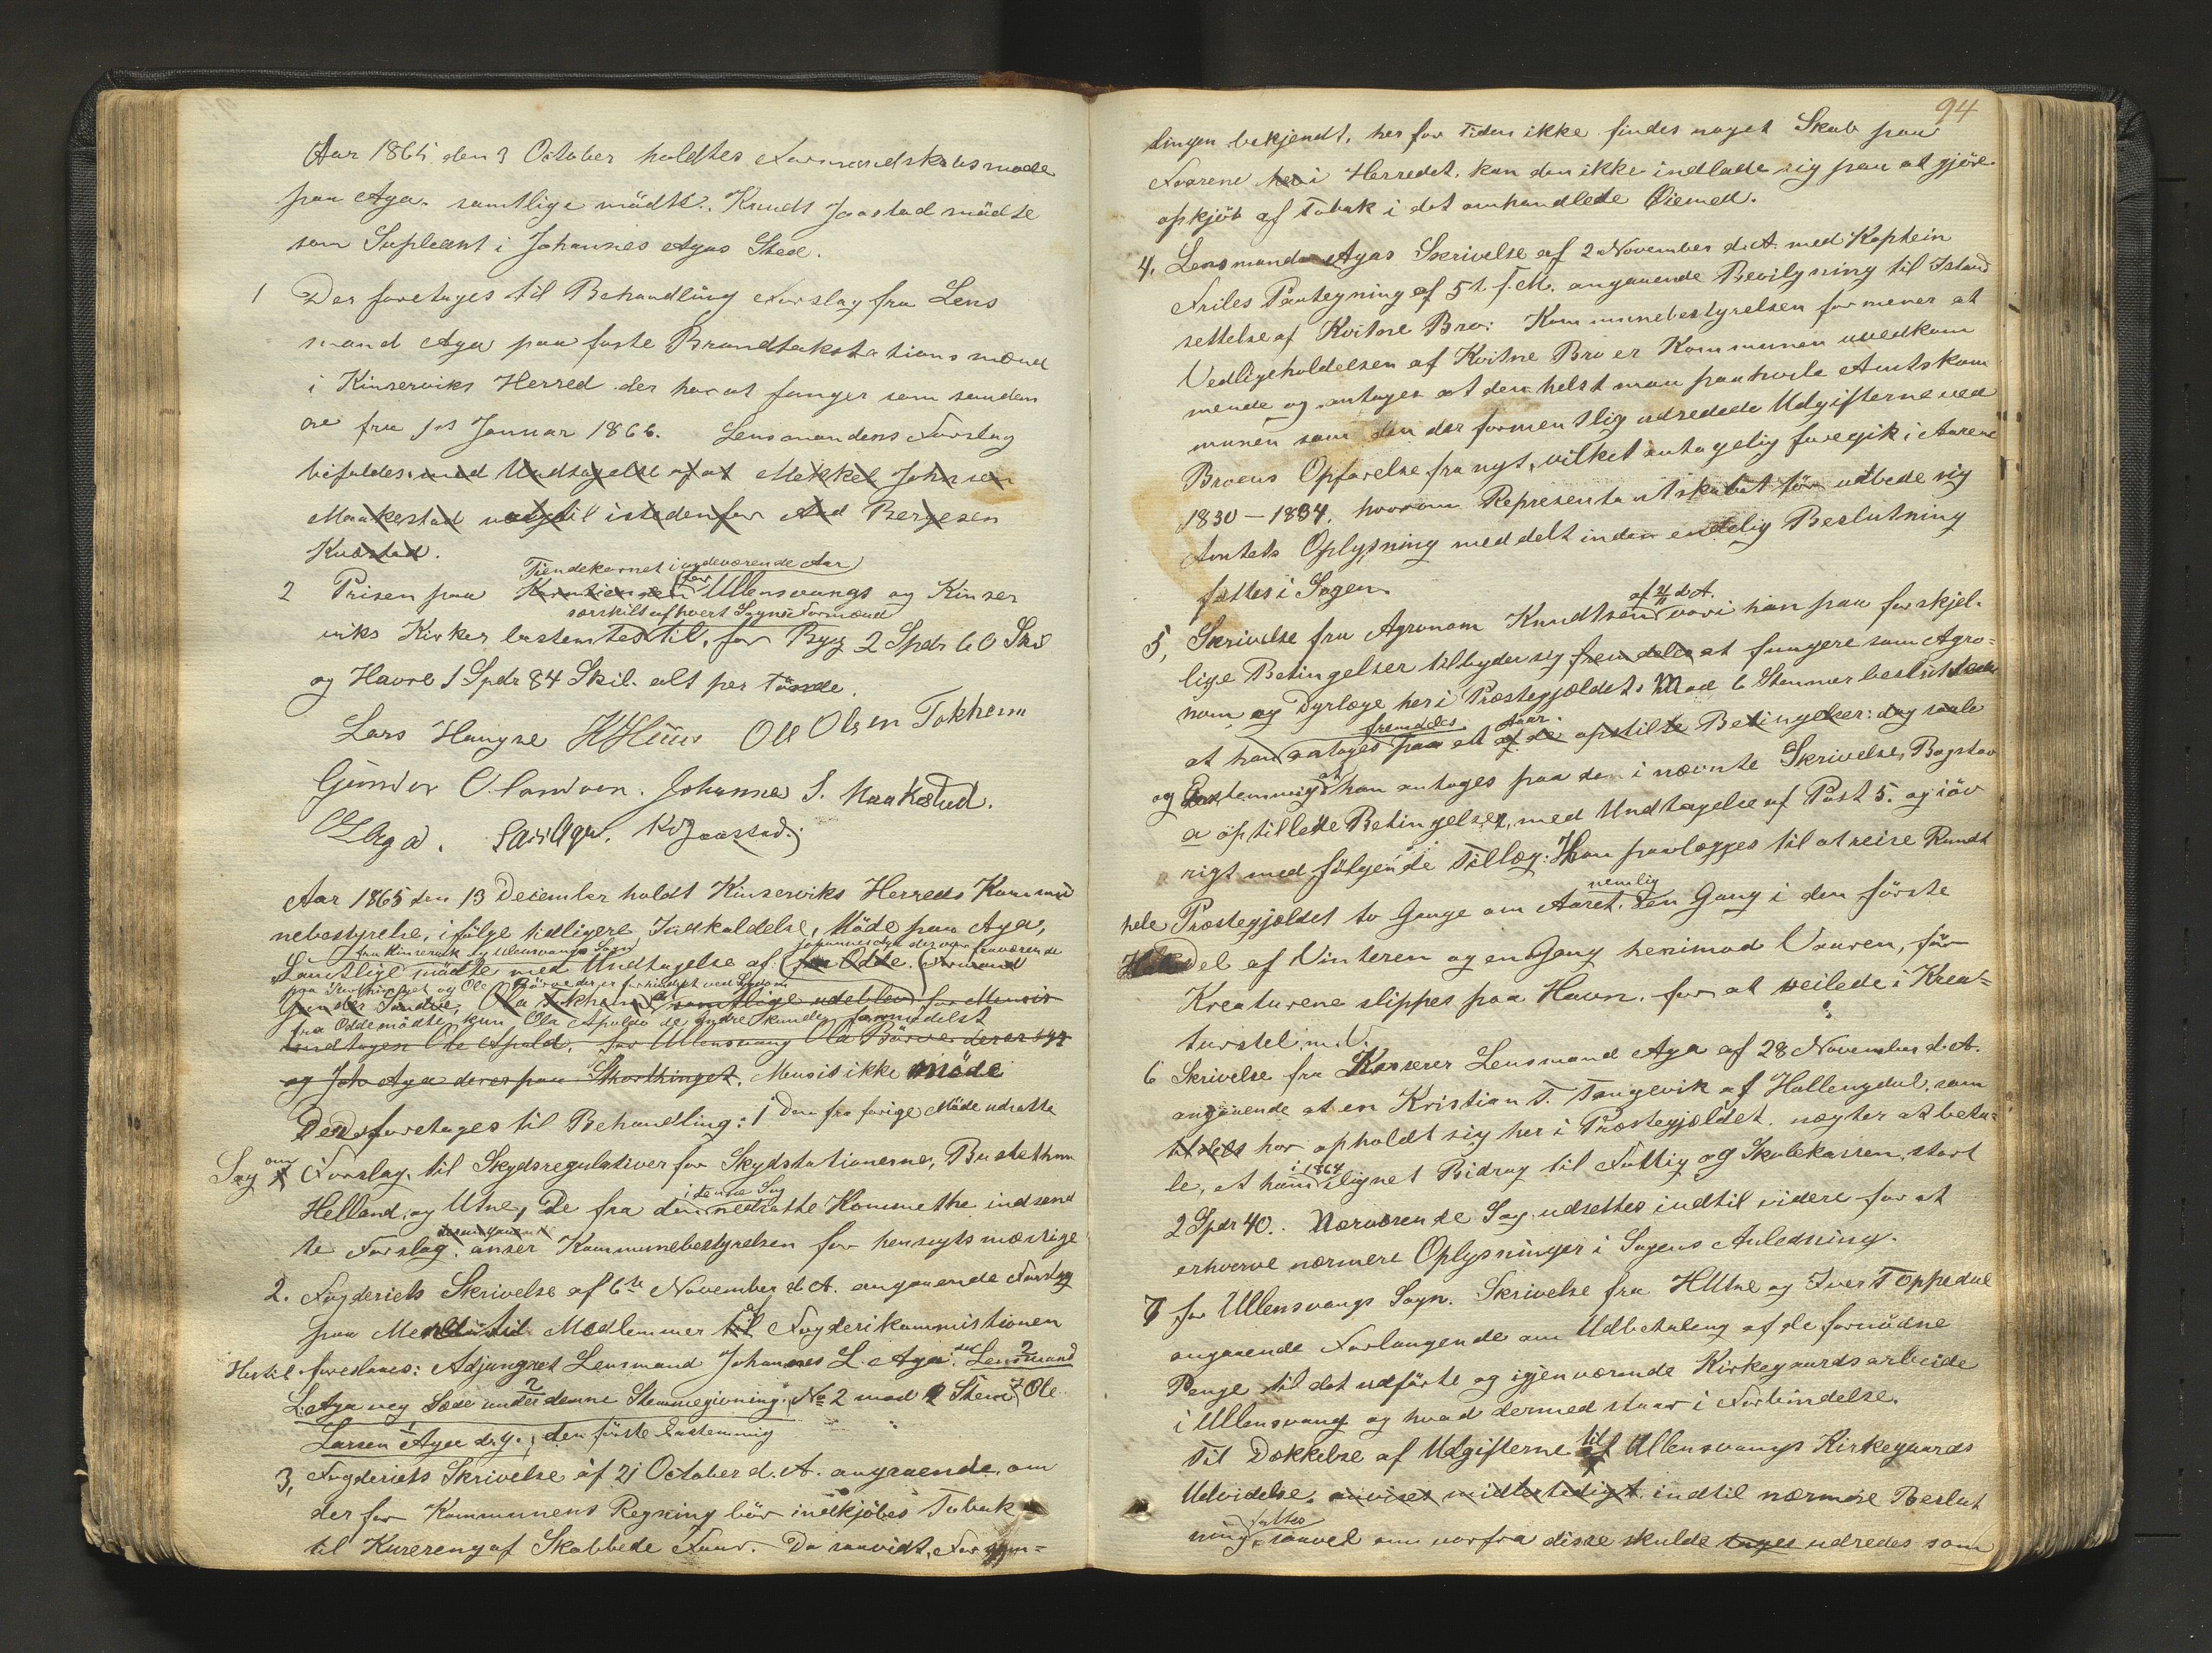 Aar 1865 den 3 October holdtes Formandskabsmøde
paa Aga. samtlige mødte. Knudt Jaastad mødte
som Supleant i Johannes Agas Sted.
1 Der foretages til Behandling Forslag fra Lens
mand Aga paa faste Brandtakstationsmænd
i Kinserviks Herred der har at funger som saadan
ne fra 1st Januar 1866. Lensmandens Forslag
bifaldes med Undtagelse af at Mikkel Johnsen
Maakestad valgtil istedenfor Aad Bergesen
Kvæstad.
Tiendekornet i indeværende Aar
2 Prisen paa for Ullensvangs og Kinser
særskilt af hvert Sogns Formænd
viks Kirker bestemtes til, for Byg 2 Spdr 60 Skil
og Havre 1 Spdr 84 Skil. alt per Tønde.
Lars Haugse HHuus Ole Olsen Tokheim
Gunder O Sandven. Johannes S. Maakestad.
LLAga. KJaastad.
Aar 1865 den 13 December holdt Kinserviks Herreds Kommu
nebestyrelse, ifølge tidligere Indkaldelse, Møde paa Aga,
fra Kinservik og Ullensvangs Sogn Johannes Aga der var fraværende
Samtlige mødte med Undtagelse af for Odde. Formand
paa Storthinget og Ole Børve der er forhindret ved Sygdom
Gunder Sandve, Ola Tokheim samtlige udeblev for Menis
fra Odde mødte kun Ola Apold de andre kunde formedelst
undtagen Ole Apold, for Ullensvang Ola Børve der er syg
og Joh Aga der er paa Storthinget. Menis ikke møde
Der foretages til Behandling: 1 Den fra forige Møde udsatte
Sag om Forslag til Skydsregulativer for Skydstationerne, Bustethun
i denne Sag
Helland, og Utne, De fra den nedsatte Kommitte indsend
desangaaende
te Forslag. anser Kommunebestyrelsen for hensigtsmæssige
2. Fogderiets Skrivelse af 6te November d.A. angaaende Forslag
paa Medlemmer til af Fogderikommistionen
Hertil foreslaaes: Adjungret Lensmand Johannes L. Aga. Lensmand
L. Aga veg Sæde under denne Stemmegivning. No 2 med 2 Stem Ole
Larsen Aga d.y., den første Enstemmig
3, Fogderiets Skrivelse af 21 October d.A. angaaende, om
der for Kommunens Regning bør indkjøbes Tobak
til Kurering af Skabbede Faar. Da saavidt, Forsam=
94
lingen bekjendt, her for Tiden ikke findes noget Skab paa
Faarene her i Herredet, kan den ikke indlade sig paa at gjøre
opkjøb af Tobak i det omhandlede Øiemed.
4. Lensmand Agas Skrivelse af 2 November d.A. med Kaptein
Friles Paategning af 5t f.M. angaaende Bevilgning til Istand
settelse af Kvitne Bro: Kommunebestyrelsen formener at
Vedligeholdelsen af Kvitne Bro er Kommunen uvedkom
mende og antages at den helst maa paahvile Amtskom
munen som den der formentlig udredede Udgifterne ved
Broens Opførelse fra nyt, vilket antagelig foregik i Aarene
1830 – 1834. hvorom Representantskabet før udbede sig
Amtets Oplysning meddelt inden endelig Beslutning
fattes i Sagen.
af 2/11 d.A.
5, Skrivelse fra Agronom Knudtsen vori han paa forskjel-
lige Betingelser tilbyder sig fremdeles at fungere som Agro=
nom og Dyrlæge her i Præstegjældet. Med 6 Stemmer besluttedes
fremdeles Aar.
at han antages paa et af de opstilte Betingelser: dog saale
og Enstemmig at han antages paa den i nævnte Skrivelse, Bogstav
a opstillede Betingelser, med Undtagelse af Post 5. og iøv
rigt med følgende Tillæg: Han paalægges til at reise Rundt
nemlig
hele Præstegjældet to Gange om Aaret. en Gang i den første
Del af Vinteren og en Gang henimod Vaaren, før
Kreaturene slippes paa Havn. for at veilede i Krea=
turstel m.V.
6 Skrivelse fra Kasserer Lensmand Aga af 28 November d.A.
angaaende at en Kristian T. Tangevik af Hallengdal, som
tildels har opholdt sig her i Præstegjældet. nægter at beta=
i 1864
le, et ham ilignet Bidrag til Fattig og Skolekassen, stort
2 Spdr 40. Nærværende Sag udsettes indtil videre for at
erhverve nærmere Oplysninger i Sagens Anledning.
7 for Ullensvangs Sogn. Skrivelse fra HUtne og Iver Toppedal
angaaende Forlangende om Udbetaling af de fornødne
Penge til det udførte og igjenværende Kirkegaardsarbeide
i Ullensvang og hvad dermed staar i Forbindelse.
Til Dækkelse af Udgifterne til Ullensvangs Kirkegaards
Udvidelse. anvises midlertidigt indtil nærmere Beslut
fattes
ning, saavel om vorfra disse skulde tages udredes som